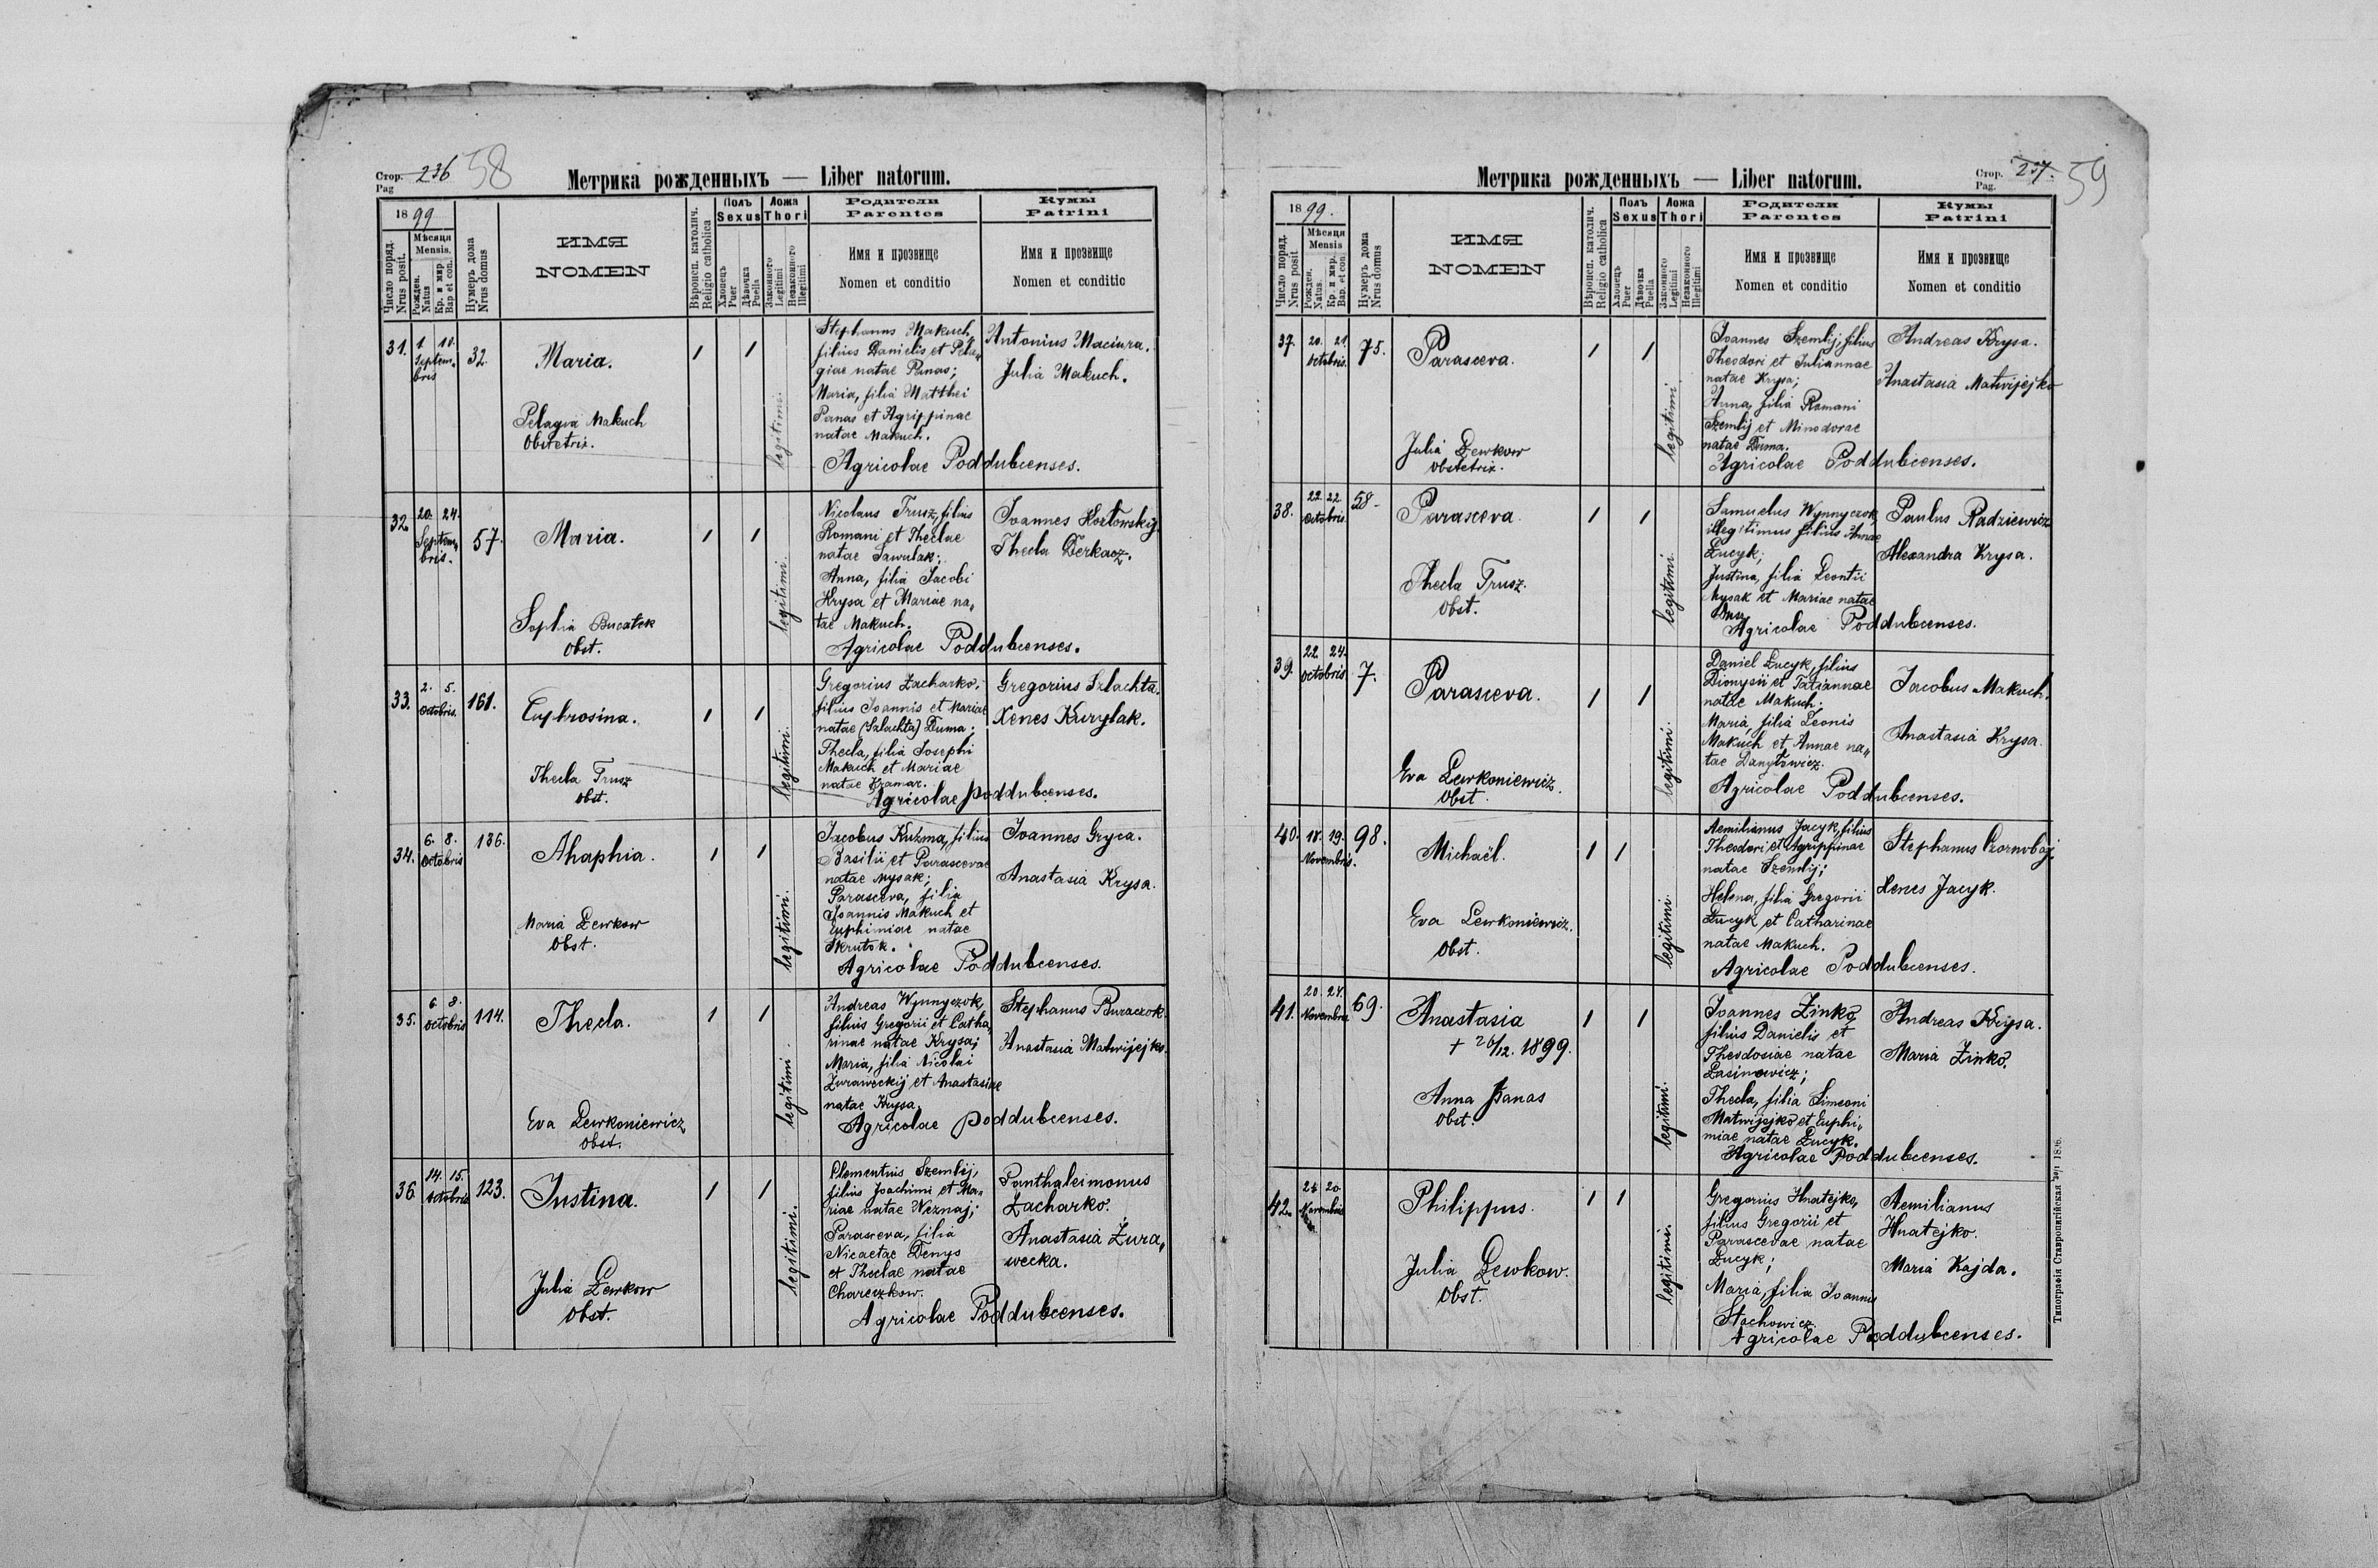 Стор. 236 58
Pag
Метрика рожденныхъ — Liber natorum.
1899
Число поряд. Nrus posit.
Мѣсяця Mensis.
Рожден. Natus
Кр. и мир. Bap et con.
Нумеръ дома Nrus domus
ИМЯ
NOMEN
Вѣроисп. католич. Religio catholica
Полъ Sexus
Хлопець Puer
Дѣвочка Puella
Ложа Thori
Законного Legitimi
Незаконного Illegitimi
Родители
Parentes
Имя и прозвище
Nomen et conditio
Кумы
Patrini
Имя и прозвище
Nomen et conditio
31. 1. 10. Septem-bris 32. Maria. 1 1 legitimi.
Pelagia Makuch
Obstetrix.
Stephanus Makuch,
filius Danielis et Pela„
giae natae Panas;
Maria, filia Matthei
Panas et Agrippinae
natae Makuch.
Agricolae Poddubcenses.
Antonius Maciura.
Julia Makuch.
32 20. 24. Septem„bris. 57. Maria. 1 1 legitimi.
Sophia
Obst.
Nicolaus Trusz, filius
Romani et Theclae
natae Sawulak;
Anna, filia Jacobi
Krysa et Mariae na„
tae Makuch.
Agricolae Poddubcenses.
Joannes Kozłowskij
Thecla Derkacz.
33. 2. 5. Octobris. 161. Euphrosina. 1 1 legitimi.
Thecla Trusz
Obst.
Gregorius Zacharko,
filius Joannis et Mariae
natae (Szlachta) Duma;
Thecla, filia Josephi
Makuch et Mariae
natae Kramar.
Agricolae poddubcenses.
Gregorius Szlachta.
Xenes Kurylak.
34. 6. 8. Octobris 136. Ahaphia. 1 1 legitimi.
Maria Lewkow
Obst.
Jacobus Kuzma, filius
Basilii et Parascevae
natae Mysak;
Parasceva, filia
Joannis Makuch et
Euphimiae natae
Skrutok.
Agricolae Poddubcenses.
Joannes Gryca.
Anastasia Krysa.
35. 6 8. Octobris 114. Thecla. 1 1 legitimi.
Eva Lewkoniewicz
Obst.
Andreas Wynnyczok,
filius Gregorii et Catha„
rinae natae Krysa;
Maria, filia Nicolai
Żuraweckij et Anastasiae
natae Krysa.
Agricolae poddubcenses.
Stephanus Buraczok.
Anastasia Matwijejko.
36. 14. 15. Octobris 123. Justina. 1 1 legitimi.
Julia Lewkow
Obst.
Clementius Szemlij,
filius Joachimi et Ma„
riae natae Neznaj;
Parasceva, filia
Nicaetae Denys
et Theclae natae
Chareczkow.
Agricolae Poddubcenses.
Panthaleimonus
Zacharko.
Anastasia Żura„
wecka.
Метрика рожденныхъ — Liber natorum.
Стор. 237. 59
Pag.
1899.
Число поряд. Nrus posit.
Мѣсяця Mensis
Рожден. Natus.
Кр. и мир. Bap. et con.
Нумеръ дома Nrus domus
ИМЯ
NOMEN
Вѣроисп. католич. Religio catholica
Полъ Sexus
Хлопець Puer
Дѣвочка Puella
Ложа Thori
Законного Legitimi
Незаконного Illegitimi
Родители
Parentes
Имя и прозвище
Nomen et conditio
Кумы
Patrini
Имя и прозвище
Nomen et conditio
37. 20. 21. Octobris. 75. Parasceva. 1 1 legitimi.
Julia Lewkow
Obstetrix.
Joannes Szemlij, filius
Theodori et Juliannae
natae Krysa;
Anna, filia Romani
Szemlij et Minodorae
natae Duma.
Agricolae Poddubcenses.
Andreas Krysa.
Anastasia Matwijejko
38. 22. 22 Octobris. 58 Parasceva. 1 1 legitimi.
Thecla Trusz.
Obst.
Samuelus Wynnyczok,
illegitimus filius Annae
Łucyk;
Justina, filia Leontii
Mysak et Mariae natae
Agricolae Poddubcenses.
Paulus Radziewicz
Alexandra Krysa.
39. 22. 24. Octobris. 7. Parasceva. 1 1 legitimi.
Eva Lewkoniewicz.
Obst.
Daniel Łucyk, filius
Dionysii et Tatiannae
natae Makuch.
Maria, filia Leonis
Makuch et Annae na„
tae Danyłowicz.
Agricolae Poddubcenses.
Jacobus Makuch.
Anastasia Krysa.
40. 18. 19. Novembris. 98. Michaël. 1 1 legitimi.
Eva Lewkoniewicz.
Obst.
Aemilianus Jacyk, filius
Theodori et Agrippinae
natae Szemlij;
Helena, filia Gregorii
Łucyk et Catharinae
natae Makuch.
Agricolae Poddubcenses.
Stephanus Czornobaj.
Xenes Jacyk.
41. 20. 24. Novembris 69. Anastasia 1 1 legitimi.
+ 26/12. 1899.
Anna Panas
Obst.
Joannes Zinko,
filius Danielis et
Theodosiae natae
Łasinowicz;
Thecla, filia Simeoni
Matwijejko et Euphi„
miae natae Łucyk.
Agricolae Poddubcenses.
Andreas Krysa.
Maria Zinko.
42. Novembris Philippus. 1 1 legitimi.
Julia Lewkow.
Obst.
Gregorius Hnatejko,
filius Gregorii et
Parascevae natae
Łucyk;
Maria, filia Joannis
Stachowicz.
Agricolae Poddubcenses.
Aemilianus
Hnatejko.
Maria Kajda.
Типографія Ставропигійская